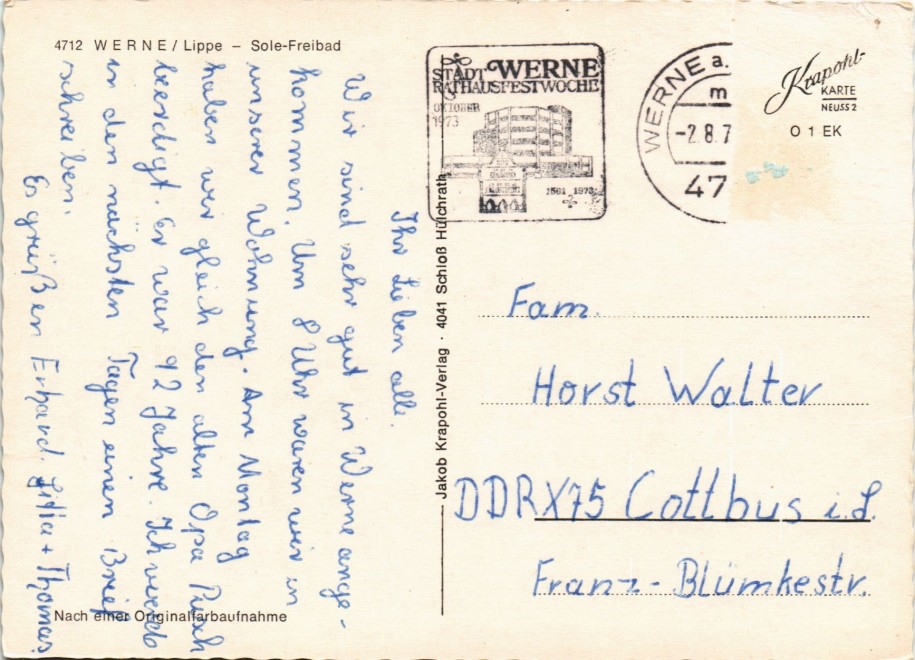 4712 WERNE / Lippe – Sole-Freibad
Ihr Lieben alle.
Wir sind sehr gut in Werne ange-
kommen. Um 8 Uhr waren wir in
unserer Wohnung. Am Montag
haben wir gleich den alten Opa
beerdigt. Er war 92 Jahre. Ich werde
in den nächsten Tagen einen Brief
schreiben.
Es grüßen Erhard. + Thomas.
Nach einer Originalfarbaufnahme
Jakob Krapohl-Verlag · 4041 Schloß Hülchrath
STADT WERNE
RATHAUSFESTWOCHE
OKTOBER
1973
1561 1973
WERNE a.
m
-2.8.7
47
Krapohl-
KARTE
NEUSS 2
O 1 EK
Fam.
Horst Walter
DDR X75 Cottbus i.L.
Franz-Blümkestr.